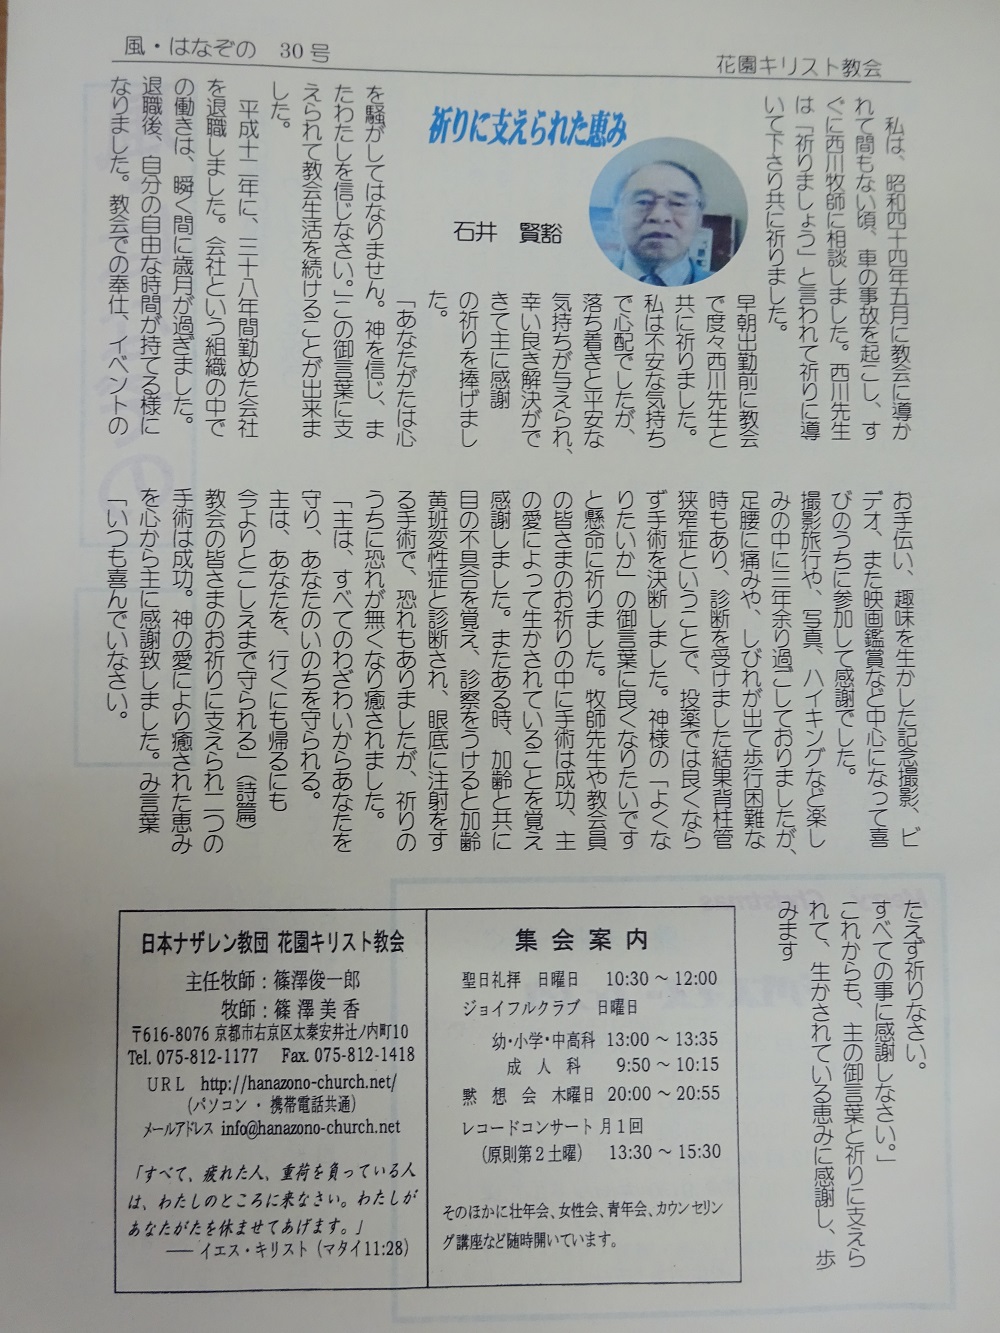 風・はなぞの 30号
花園キリスト教会
祈りに支えられた恵み
石井 賢豁
私は、昭和四十四年五月に教会に導か
れて間もない頃、車の事故を起こし、す
ぐに西川牧師に相談しました。西川先生
は「祈りましょう」と言われて祈りに導
いて下さり共に祈りました。
早朝出勤前に教会
で度々西川先生と
共に祈りました。
私は不安な気持ち
で心配でしたが、
落ち着きと平安な
気持ちが与えられ、
幸い良き解決がで
きて主に感謝
の祈りを捧げまし
た。
「あなたがたは心
を騒がしてはなりません。神を信じ、ま
たわたしを信じなさい。」この御言葉に支
えられて教会生活を続けることが出来ま
した。
平成十二年に、三十八年間勤めた会社
を退職しました。会社という組織の中で
の働きは、瞬く間に歳月が過ぎました。
退職後、自分の自由な時間が持てる様に
なりました。教会での奉仕、イベントの
お手伝い、趣味を生かした記念撮影、ビ
デオ、また映画鑑賞など中心になって喜
びのうちに参加して感謝でした。
撮影旅行や、写真、ハイキングなど楽し
みの中に三年余り過ごしておりましたが、
足腰に痛みや、しびれが出て歩行困難な
時もあり、診断を受けました結果背柱管
狭窄症ということで、投薬では良くなら
ず手術を決断しました。神様の「よくな
りたいか」の御言葉に良くなりたいです
と懸命に祈りました。牧師先生や教会員
の皆さまのお祈りの中に手術は成功、主
の愛によって生かされていることを覚え
感謝しました。またある時、加齢と共に
目の不具合を覚え、診察をうけると加齢
黄班変性症と診断され、眼底に注射をす
る手術で、恐れもありましたが、祈りの
うちに恐れが無くなり癒されました。
「主は、すべてのわざわいからあなたを
守り、あなたのいのちを守られる。
主は、あなたを、行くにも帰るにも
今よりとこしえまで守られる」（詩篇）
教会の皆さまのお祈りに支えられ二つの
手術は成功。神の愛により癒された恵み
を心から主に感謝致しました。み言葉
「いつも喜んでいなさい。
たえず祈りなさい。
すべての事に感謝しなさい。」
これからも、主の御言葉と祈りに支えら
れて、生かされている恵みに感謝し、歩
みます
日本ナザレン教団 花園キリスト教会
主任牧師：篠澤俊一郎
牧師：篠澤美香
〒616-8076 京都市右京区太秦安井辻ノ内町10
Tel. 075-812-1177 Fax. 075-812-1418
URL http://hanazono-church.net/
（パソコン・携帯電話共通）
メールアドレス info@hanazono-church.net
「すべて、疲れた人、重荷を負っている人
は、わたしのところに来なさい。わたしが
あなたがたを休ませてあげます。」
── イエス・キリスト（マタイ11:28）
集会案内
聖日礼拝 日曜日 10:30～12:00
ジョイフルクラブ 日曜日
幼・小学・中高科 13:00～13:35
成人科 9:50～10:15
黙想会 木曜日 20:00～20:55
レコードコンサート 月1回
（原則第2土曜） 13:30～15:30
そのほかに壮年会、女性会、青年会、カウンセリン
グ講座など随時開いています。